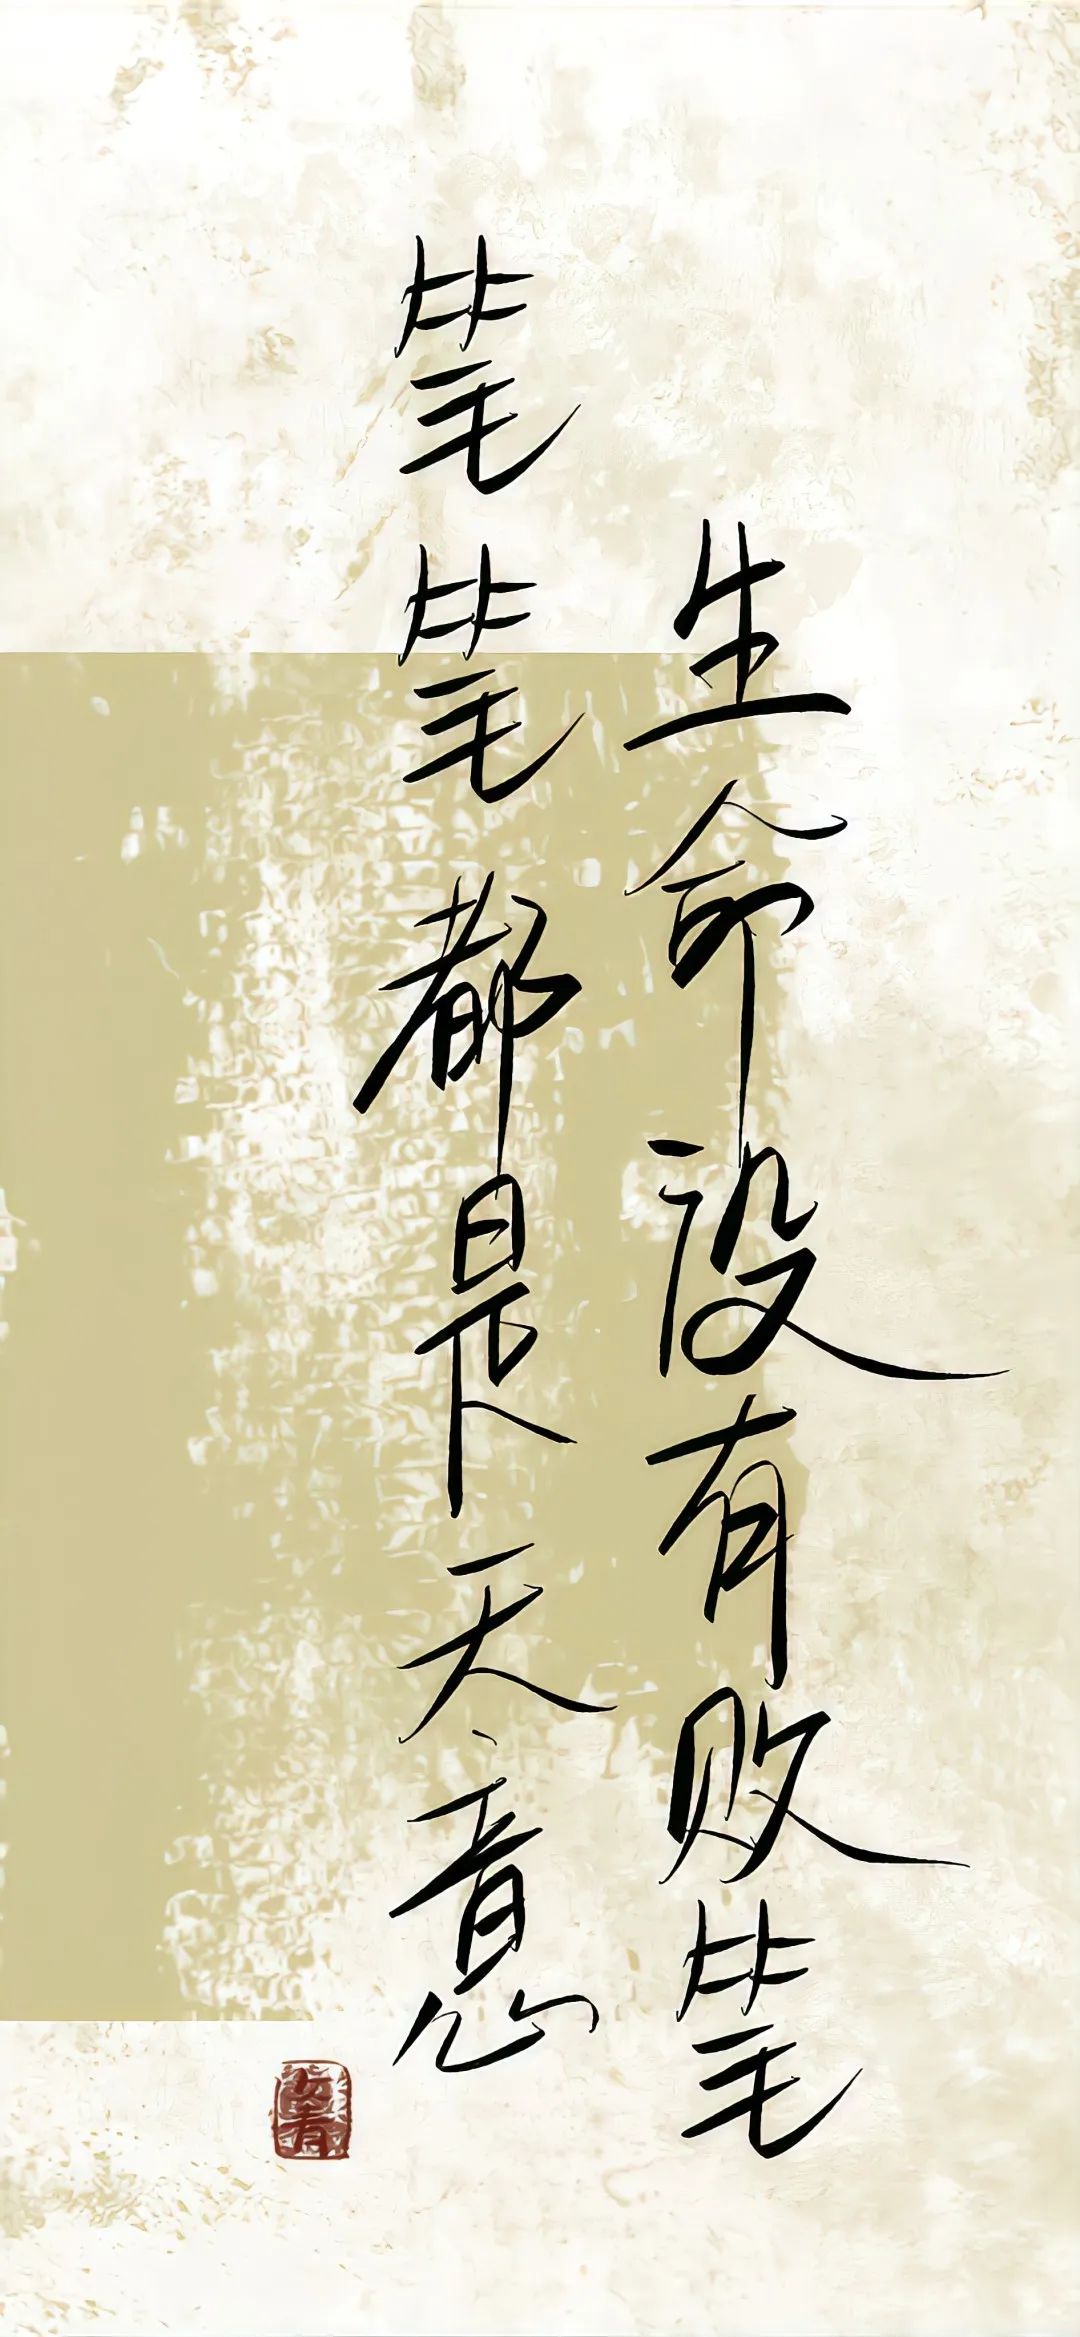 生命没有败笔
笔笔都是天意